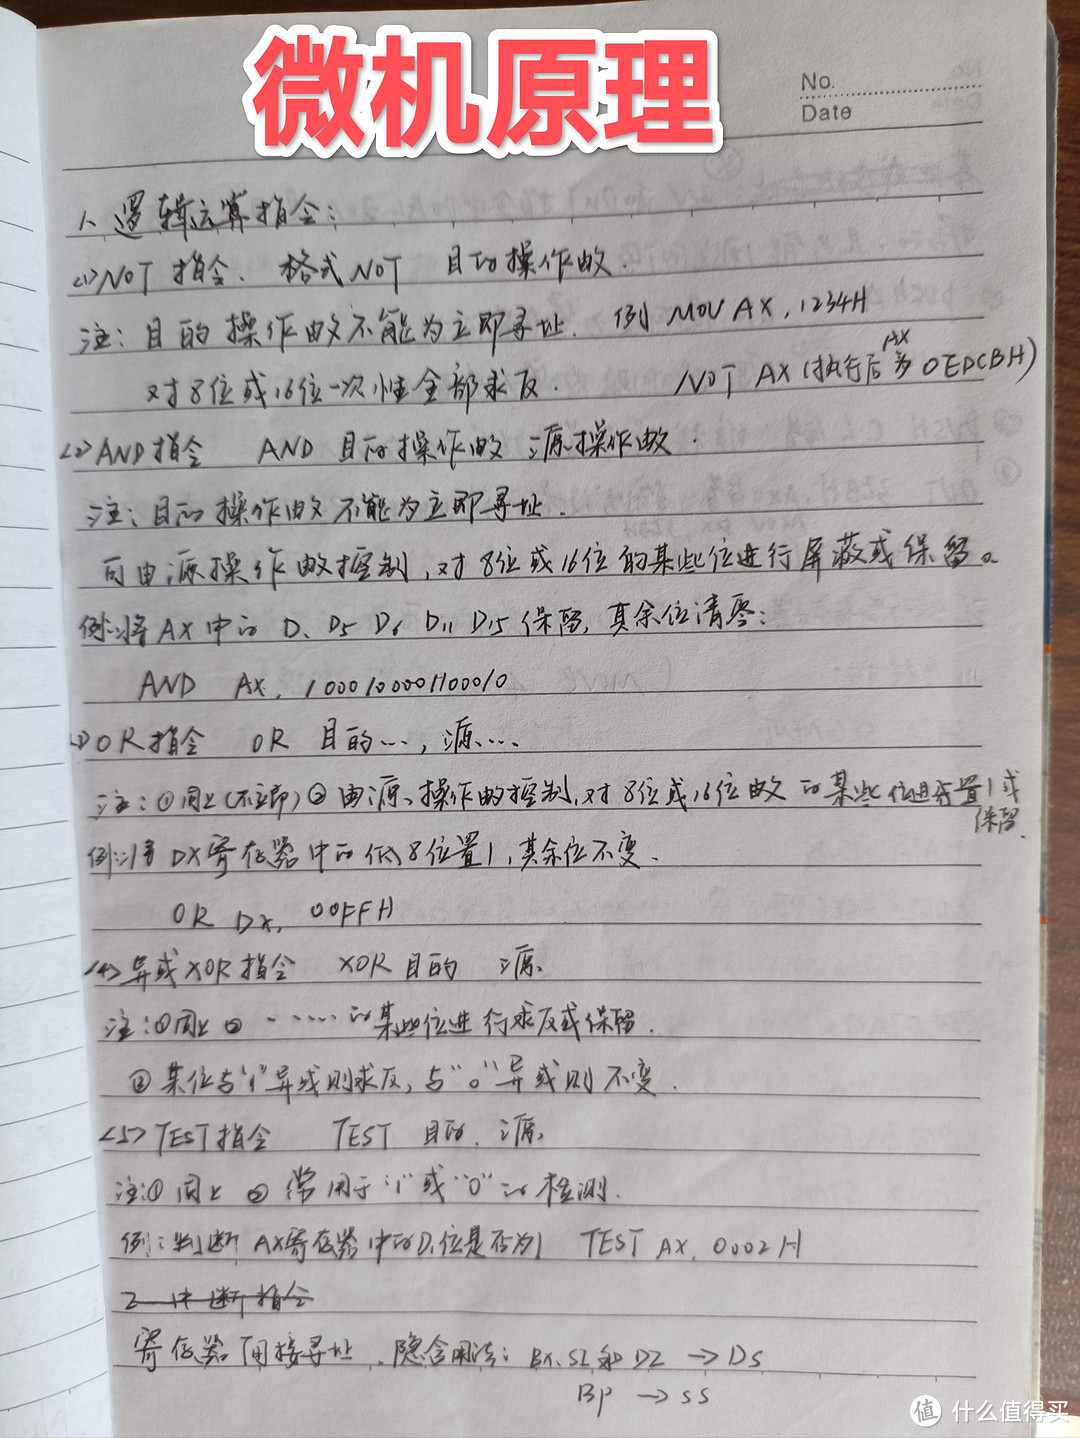 微机原理
No.
Date
1、逻辑运算指令：
<1>NOT 指令、格式 NOT 目的操作数.
注：目的操作数不能为立即寻址. 例 MOV AX, 1234H
对8位或16位一次性全部求反. NOT AX (执行后AX为 0EDCBH)
<2>AND指令 AND 目的操作数 源操作数.
注：目的操作数不能为立即寻址.
可由源操作数控制,对8位或16位的某些位进行屏蔽或保留。
例:将AX中的 D、D5 D6 D11 D15 保留, 其余位清零:
AND AX, 1000100001100010
OR指令 OR 目的…, 源….
注：①同上(不立即)②由源、操作数控制,对8位或16位数的某些位进行置1或保留.
例:将DX寄存器中的低8位置1,其余位不变.
OR DX, 00FFH
<4>异或XOR指令 XOR 目的 源、
注:①同上 ② ……的某些位进行求反或保留.
③ 某位与"1"异或则求反, 与"0"异或则不变.
<5>TEST指令 TEST 目的、源、
注:① 同上 ② 常用于"1"或"0"的检测.
例:判断AX寄存器中的D1位是否为1 TEST AX, 0002H
2 中断指令
寄存器间接寻址、隐含用法: BX、SI和DI → DS
BP → SS
值 什么值得买